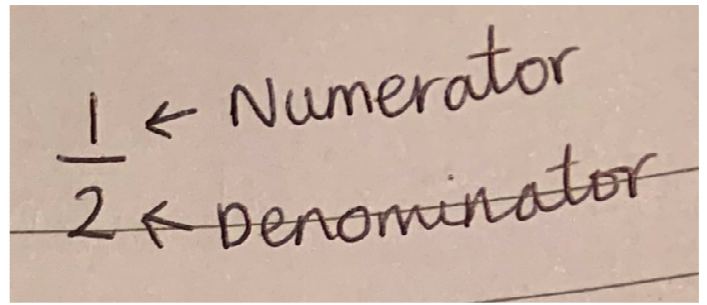 1 ← Numerator
2 ← Denominator